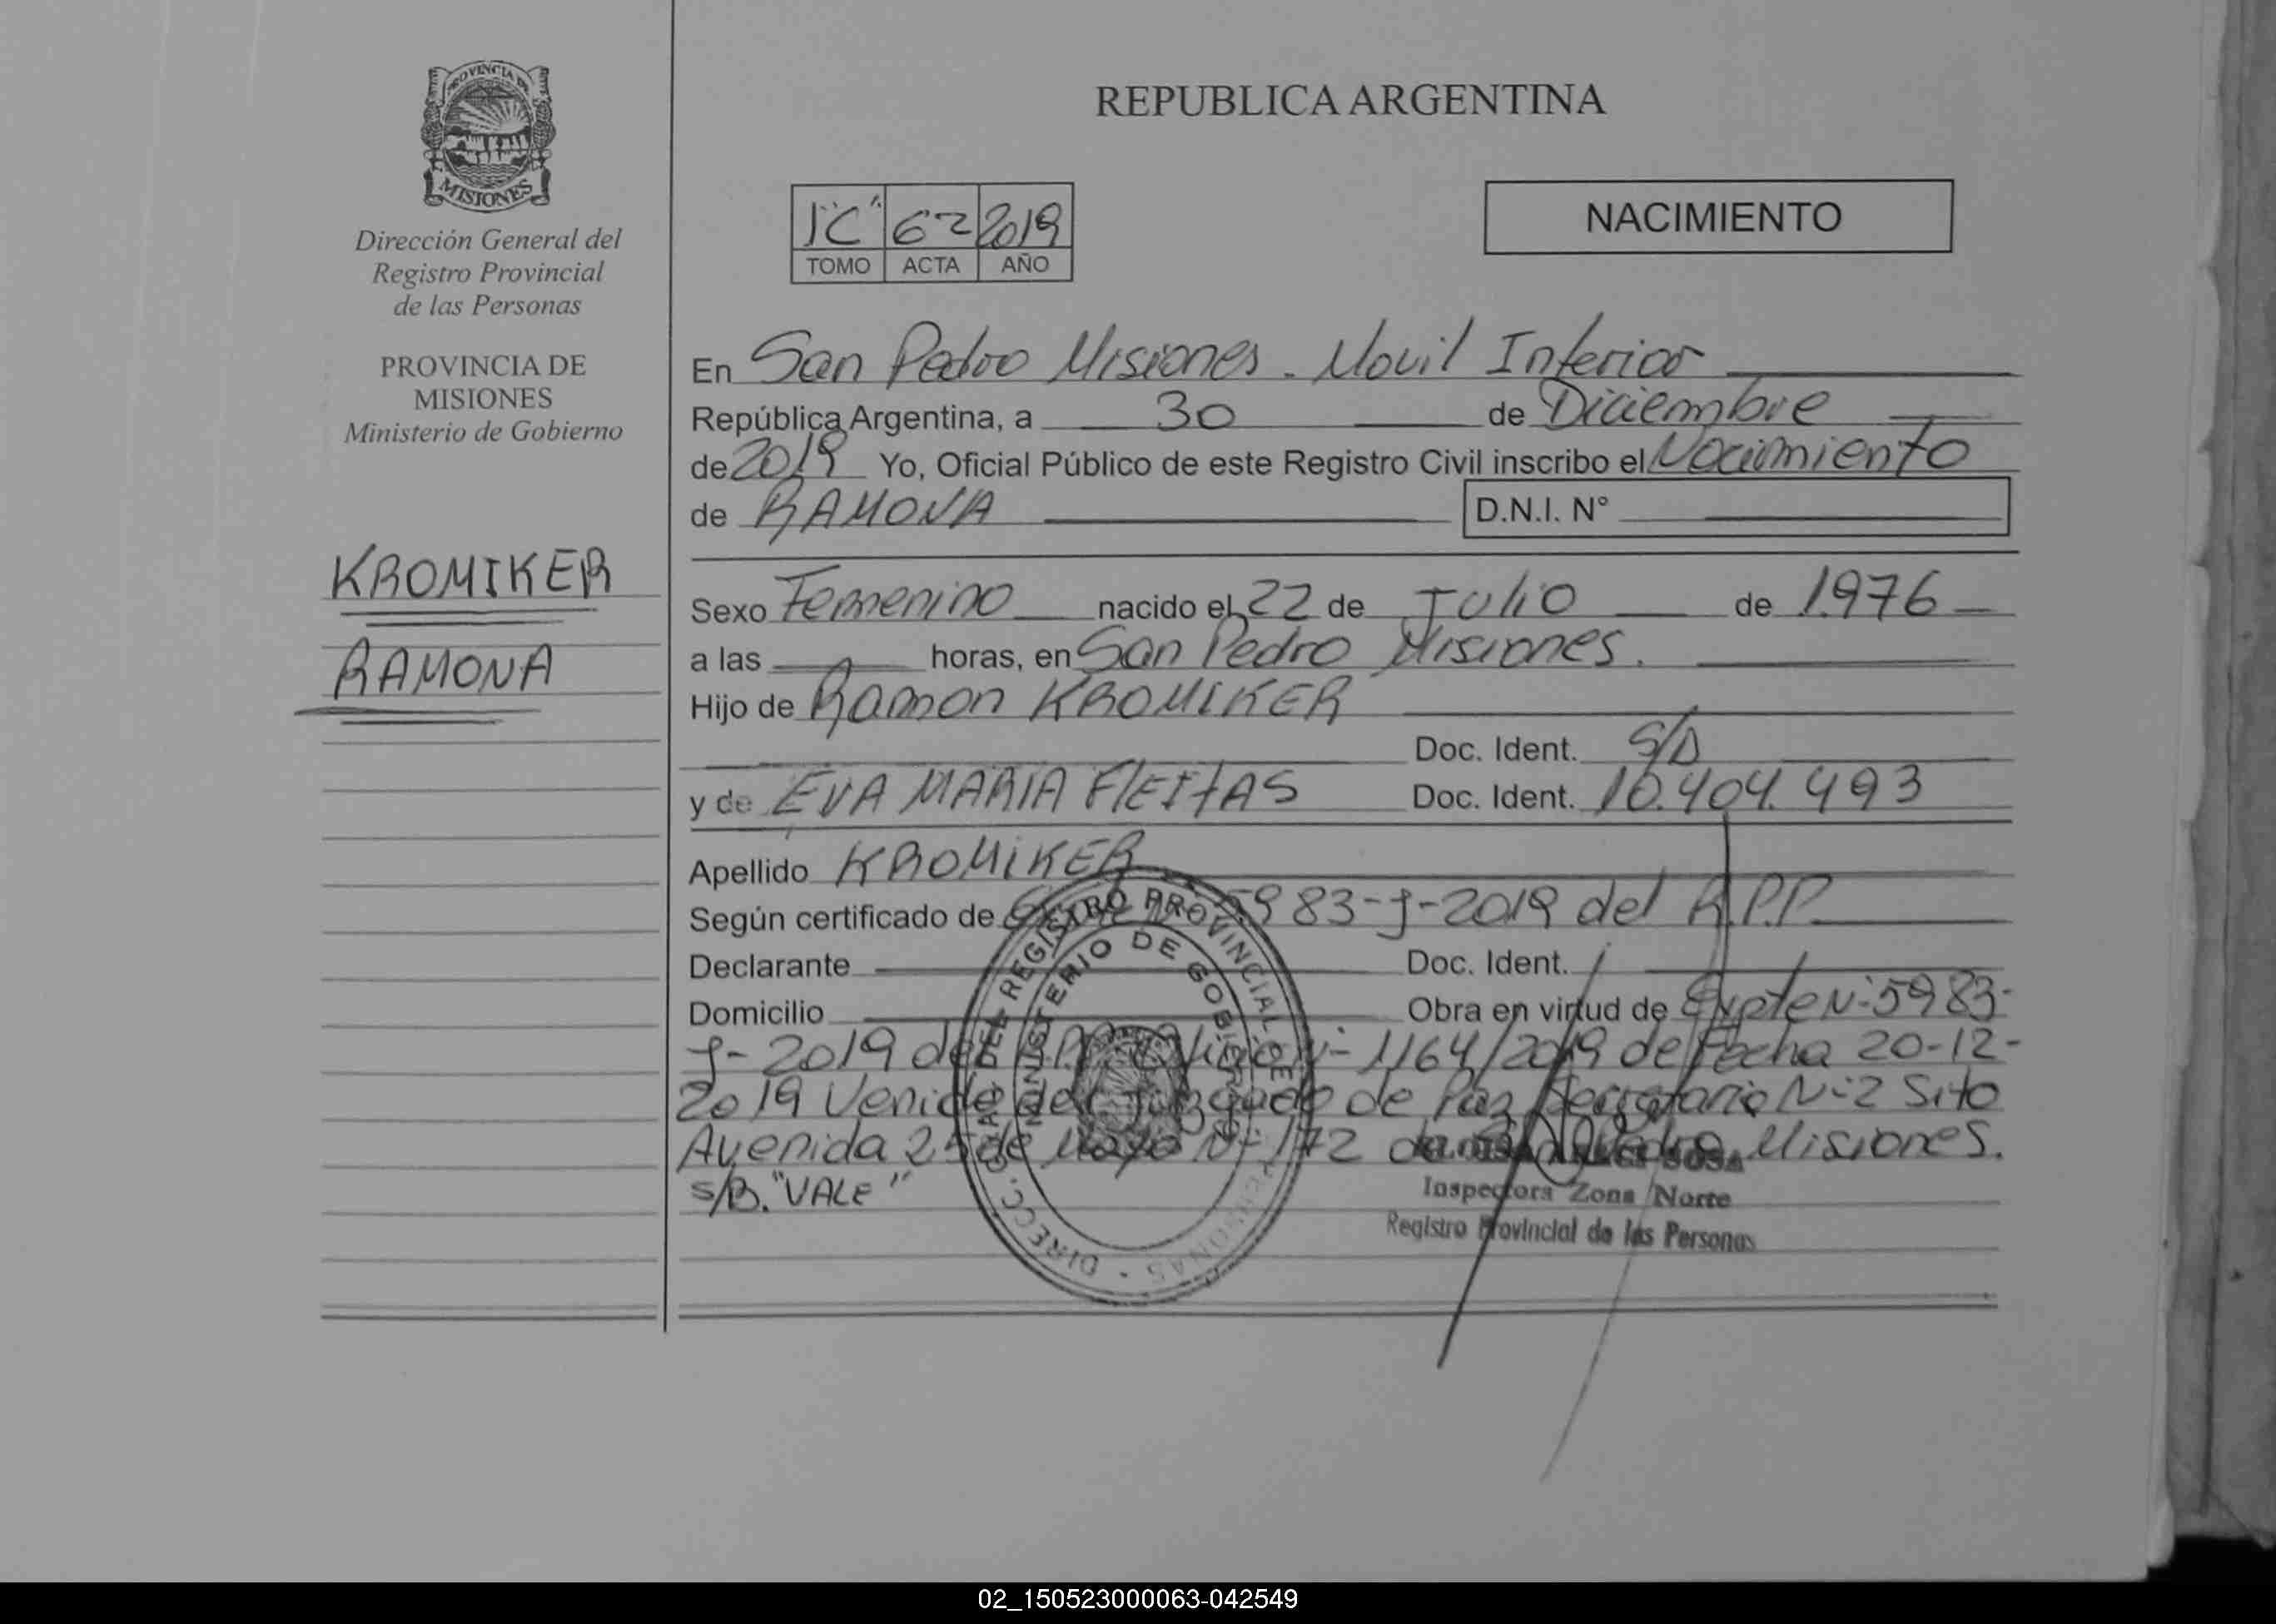 PROVINCIA DE
MISIONES
Dirección General del
Registro Provincial
de las Personas
PROVINCIA DE
MISIONES
Ministerio de Gobierno
KROMIKER
RAMONA
REPUBLICA ARGENTINA
"C" 62 2019
TOMO ACTA AÑO
NACIMIENTO
En San Pedro Misiones. Movil Inferior
República Argentina, a 30 de Diciembre
de 2019 Yo, Oficial Público de este Registro Civil inscribo el Nacimiento
de RAMONA D.N.I. N°
Sexo Femenino nacido el 22 de Julio de 1976
a las horas, en San Pedro Misiones.
Hijo de Ramon KROMIKER
Doc. Ident. S/D
y de EVA MARIA FLEITAS Doc. Ident. 10.404.493
Apellido KROMIKER
Según certificado de 5983-J-2019 del R.P.P.
Declarante Doc. Ident. /
Domicilio Obra en virtud de Expte N-5983-
J-2019 del N- 1164/2019 de Fecha 20-12-
2019 Venido del Juzgado de Paz Secretaria N-2 Sito
Avenida 25 de Mayo N- 172 de San Pedro Misiones.
S/B. "VALE"
SOSA
Inspectora Zona Norte
Registro Provincial de las Personas
DIRECC. GRAL. DEL REGISTRO PROVINCIAL DE LAS PERSONAS
MINISTERIO DE GOBIERNO
02_150523000063-042549